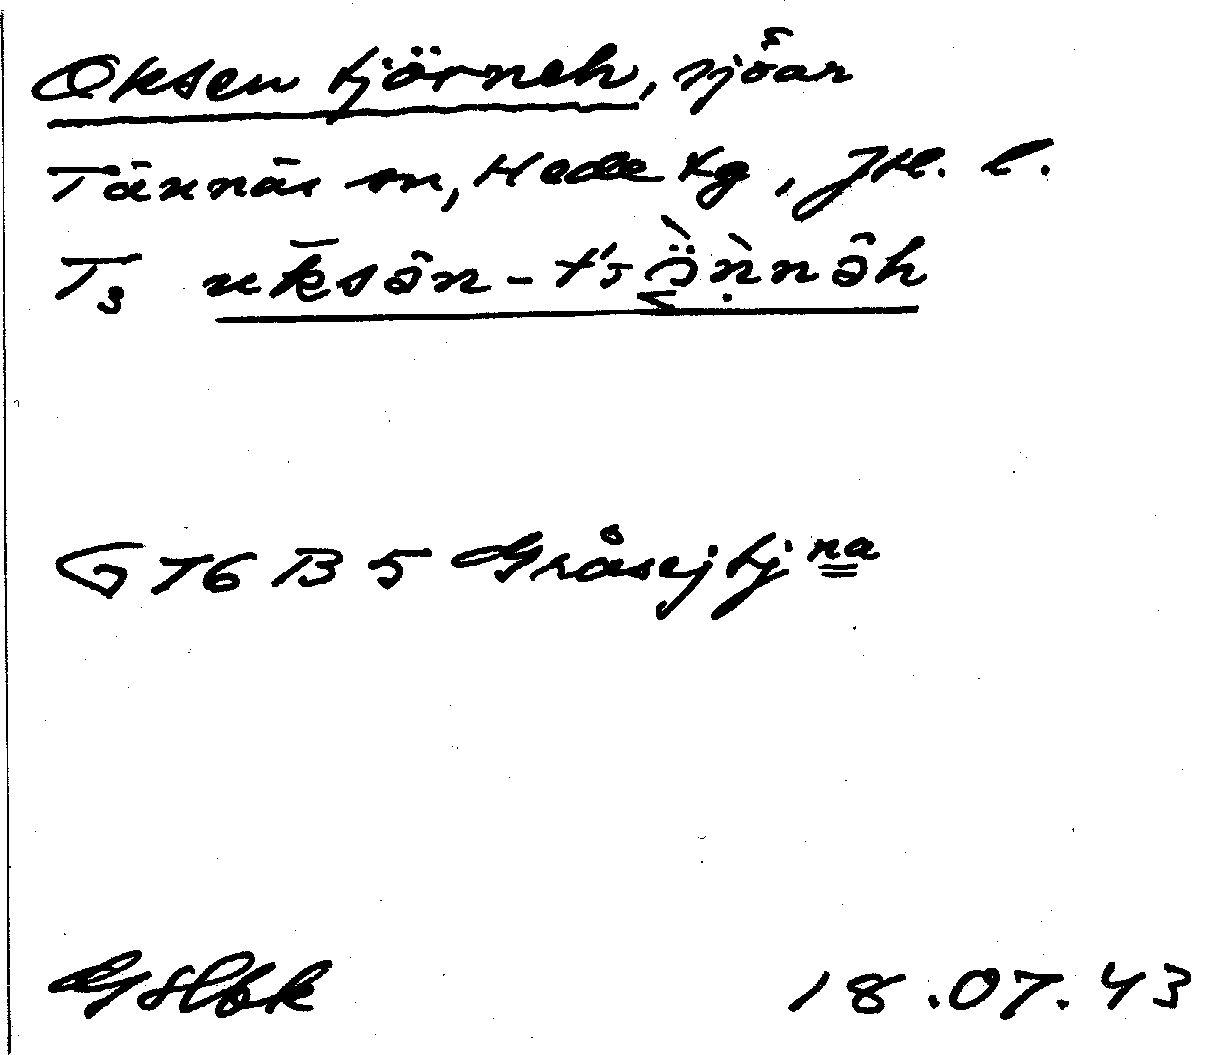 Oksen tjörneh, sjöar
Tännäs sn, Hede tg, Jtl. l.
T3 uk̅sə̂n - t's
G 76 B 5 Gråsejtjna
18.07.43